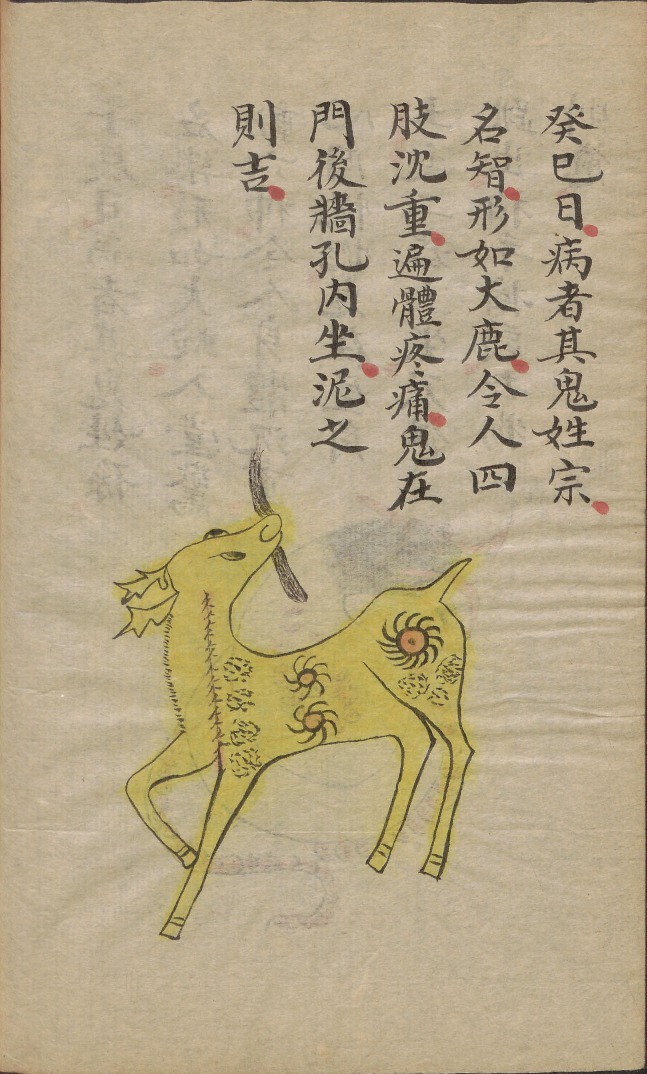 癸巳日病者其鬼姓宗
名智形如大鹿令人四
肢沈重遍體疼痛鬼在
門後牆孔内坐泥之
則吉